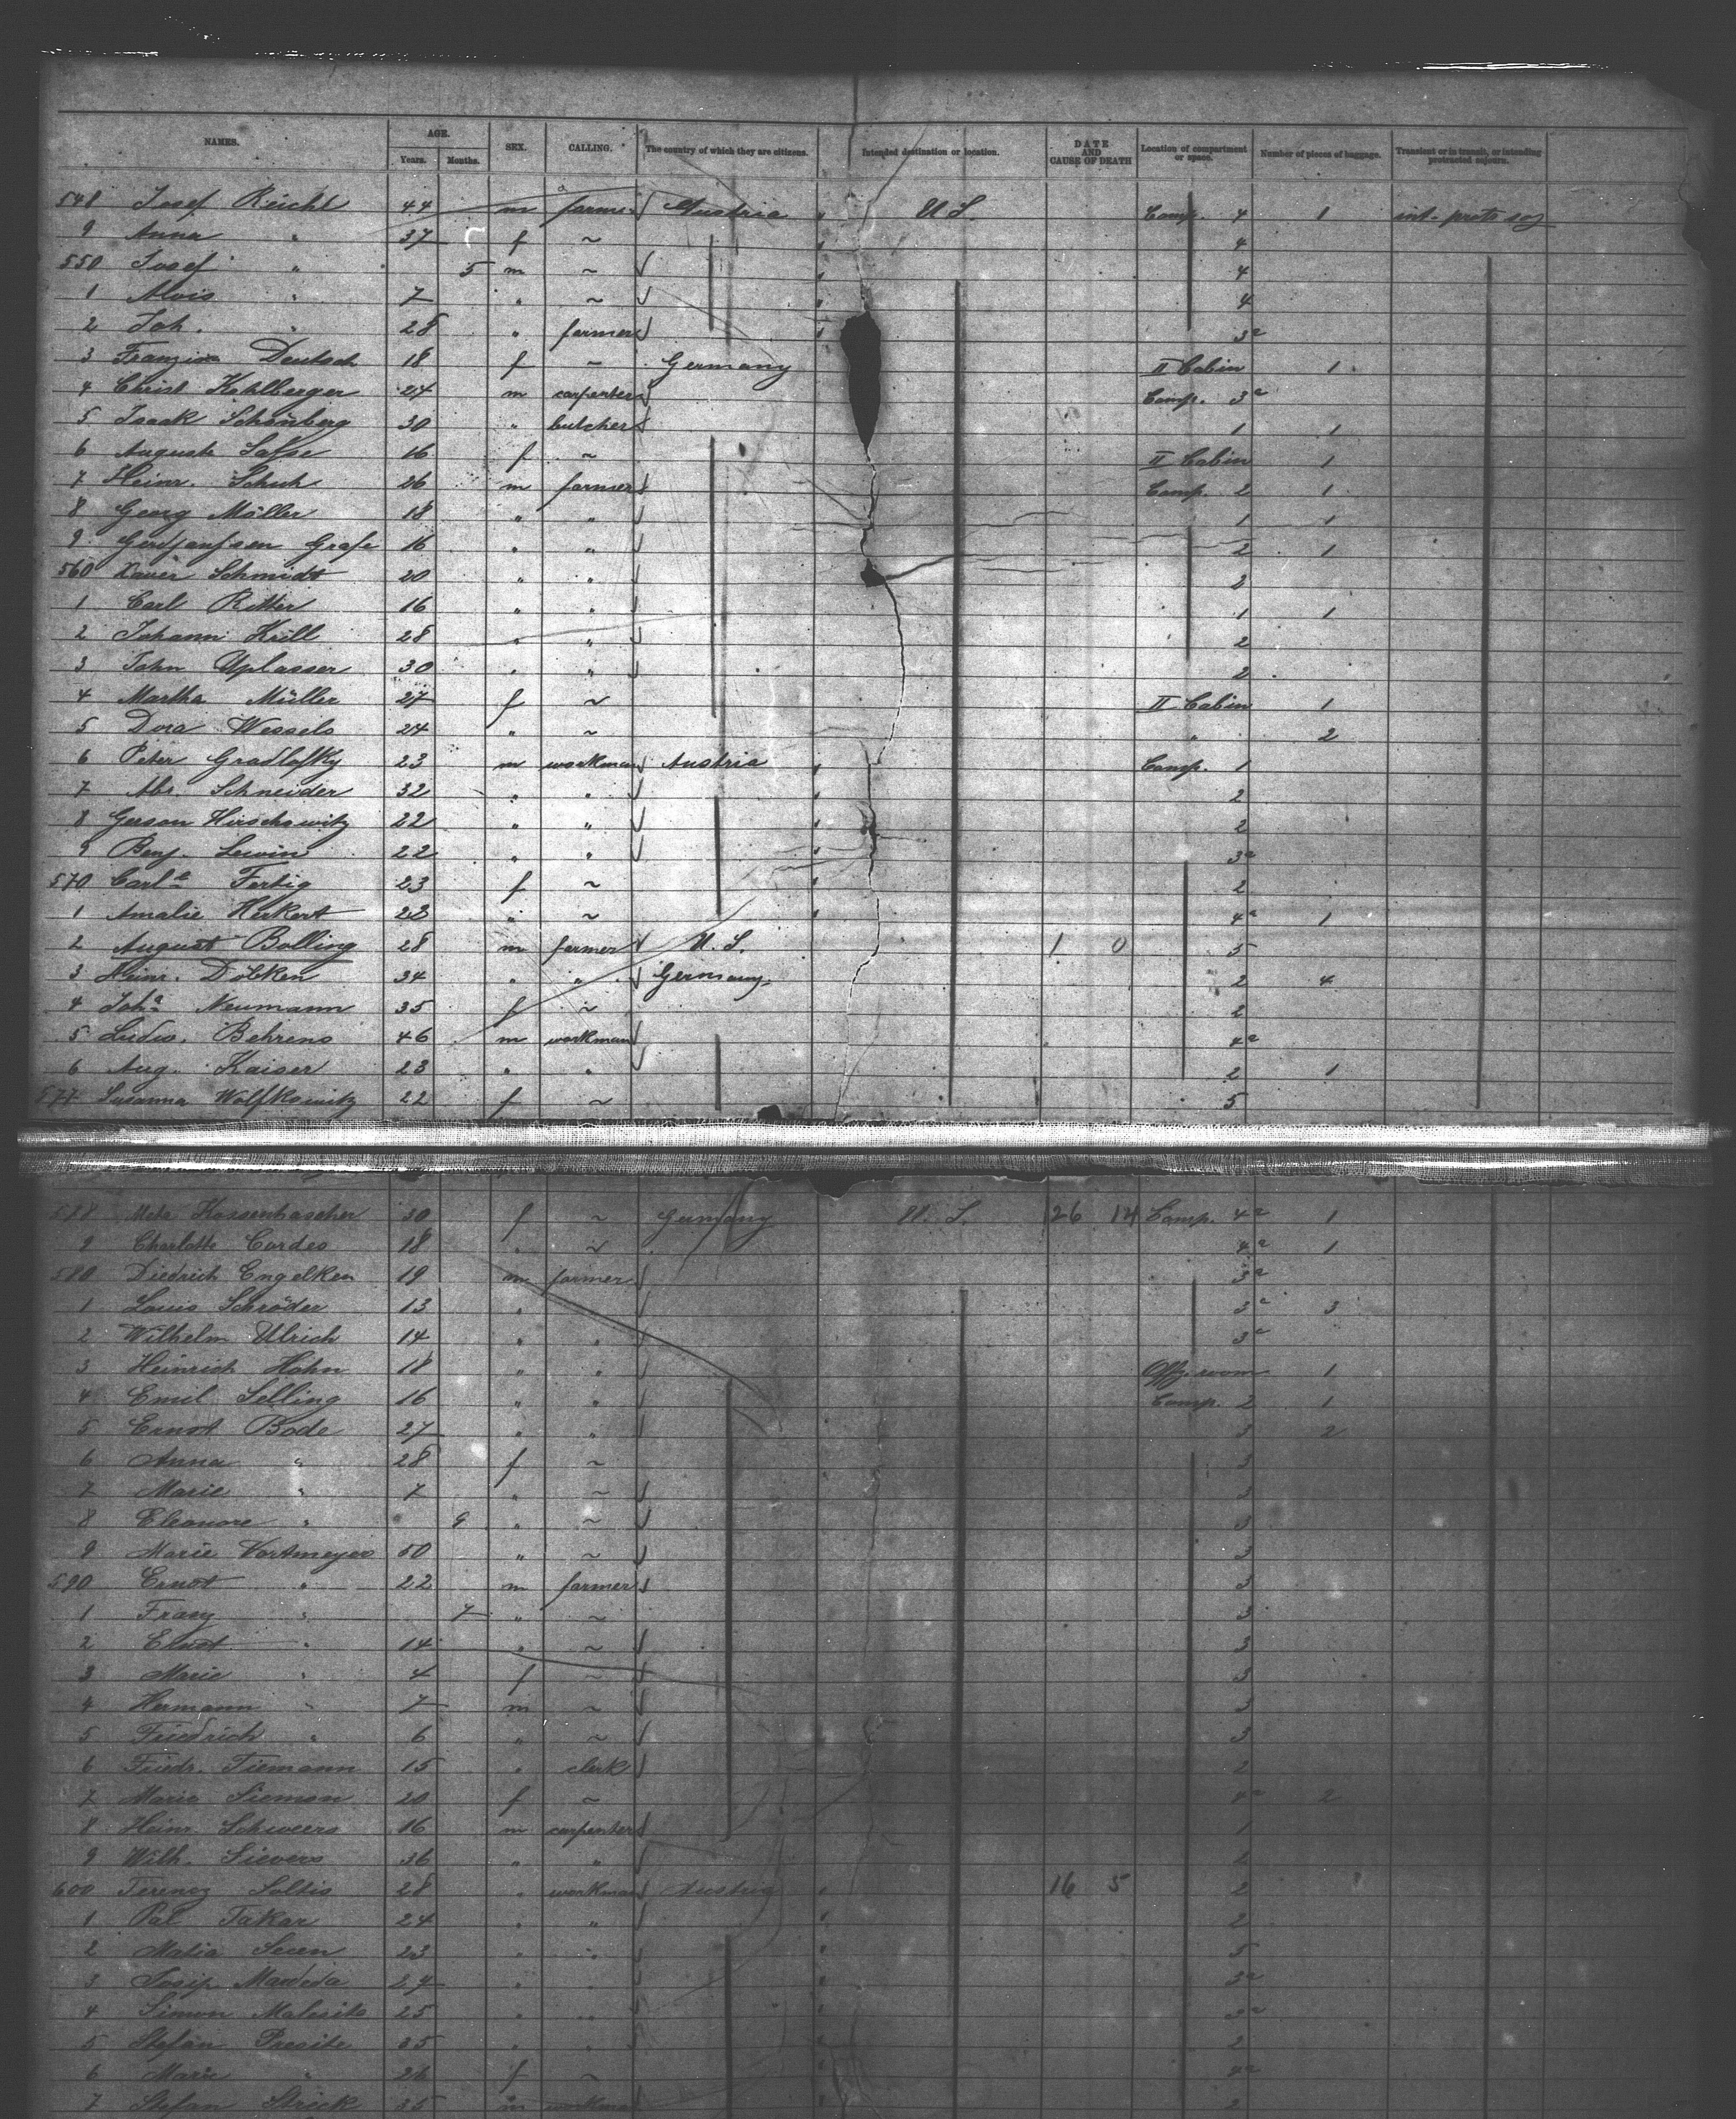 NAMES. AGE. SEX. CALLING. The country of which they are citizens. Intended destination or location. DATE AND CAUSE OF DEATH Location of compartment or space. Number of pieces of baggage. Transient or in transit, or intending protracted sojourn.
Years. Months.
548 Josef Reicht 44 m farmer Austria " U S. Comp. 4 1 int. prot. soj
9 Anna " 37 f ~ " 4
550 Josef " 5 m ~ " 4
1 Alois " 7 " ~ " 4
2 Joh. " 28 " farmer " 3a
3 Deutsch 18 f ~ Germany II Cabin 1
4 Christ. Kohlberger 24 m carpenter Comp. 3a
5 Isaak Schönberg 30 " butcher 1 1
6 Auguste 16 f ~ II Cabin 1
7 Heinr. Schuh 26 m farmer Comp. 2 1
8 Georg Möller 18 " " 1 1
9 16 " " 2 1
560 Xaver Schmidt 20 " " 2
1 Carl Ritter 16 " " 1 1
2 Johann Krill 28 " " 2
3 John Uplasser 30 " " 2
4 Martha Müller 27 f ~ II Cabin 1
5 Dora Wessels 24 " ~ " 2
6 Peter Gradlofky 23 m workman Austria " Comp. 1
7 Abr. Schneider 32 " " " 2
8 Gerson Hirschowitz 22 " " " 2
9 Benj. Lewin 22 " " " 3a
570 Carle Fertig 23 f ~ " 2
1 Amalie Herkert 22 " ~ " 4a 1
2 August Bolling 28 m farmer U. S. 1 0 5
3 Heinr. Döbken 34 " " Germany 2 4
4 Joha Neumann 35 f ~ 2
5 Ludw. Behrens 46 m workman 4a
6 Aug. Kaiser 23 " " 2 1
577 Susanna Wolfkowitz 22 f ~ 5
578 Meta Hassenhascher 30 f ~ Germany U. S. 26 14 Comp. 4a 1
9 Charlotte Cordes 18 " ~ 4a 1
580 Diedrich Engelken 19 m farmer 3a
1 Louis Schröder 13 " " 3a 3
2 Wilhelm Ulrich 14 " " 3a
3 Heinrich Hahn 18 " " Off. room 1
4 Emil Selling 16 " " Comp. 2 1
5 Ernst Bode 27 " " 3 2
6 Anna " 28 f ~ 3
7 Marie " 7 " ~ 3
8 Eleonore " 9 " ~ 3
9 Marie Vortmeyer 50 " ~ 3
590 Ernst " 22 m farmer 3
1 Franz " 7 " ~ 3
2 Ernst " 14 " ~ 3
3 Marie " 4 f ~ 3
4 Hermann " 7 m ~ 3
5 Friedrich " 6 " ~ 3
6 Friedr. Tiemann 15 " clerk 2
7 Marie Siemon 20 f ~ 4a 2
8 Heinr. Schweers 16 m carpenter 1
9 Wilh. Sievers 36 " "
600 Ferencz Soltis 28 " workman Austria " 16 5 2
1 Pal Takar 24 " " " 2
2 Matia 23 " " " 5
3 Josip 24 " " " 3a
4 Simon 25 " " " 3a
5 Stefan 35 " " 2
6 Marie " 26 f ~ " 4a
7 Stefan Strick 35 m workman " 2